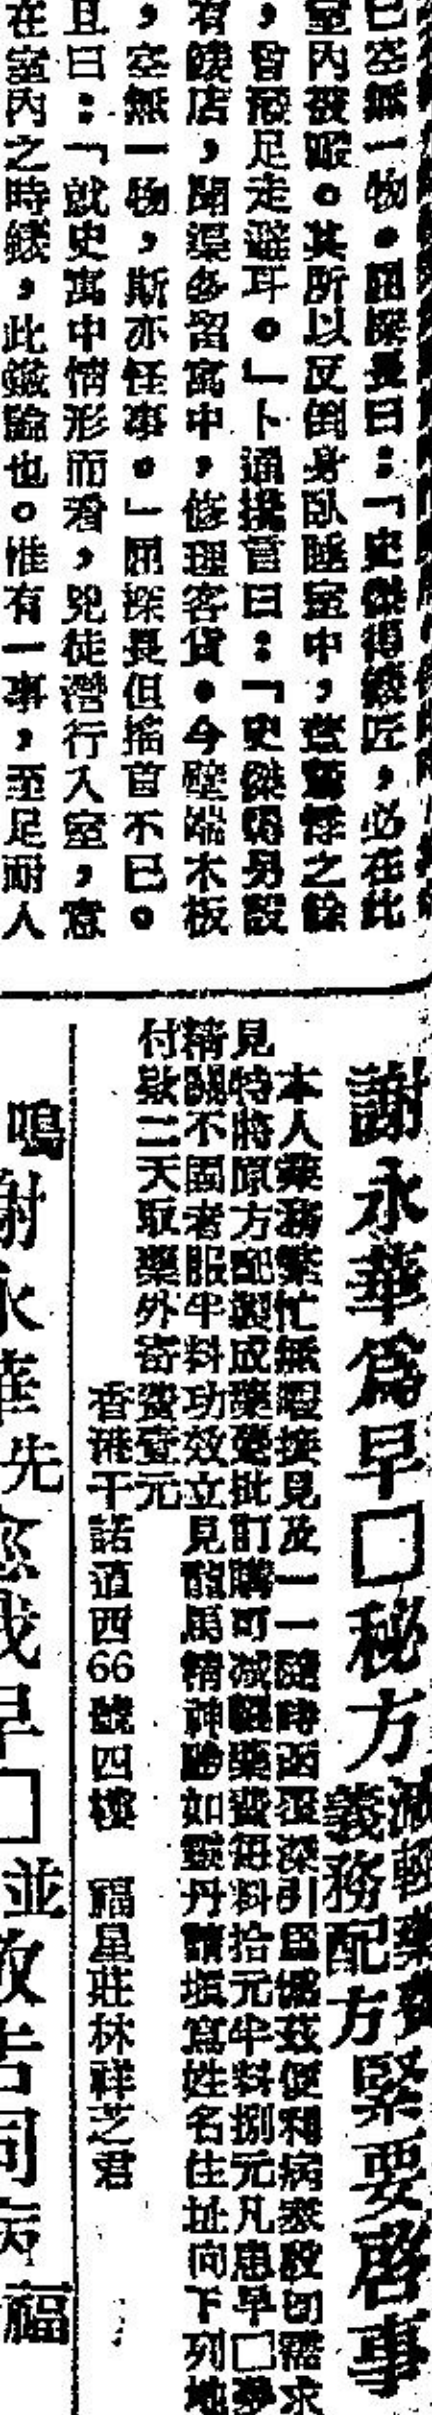 已空無一物。屈深長曰：「史傑得鐵匠，必在此
室內被殺。其所以反倒身臥睡室中，驚悸之餘
，曾發足走避耳。」卜通攪首曰：「史傑得另設
有鐵店，聞渠多留寓中，修理客貨。今壁端木板
，空無一物，斯亦怪事。」屈深長但搖首不已。
且曰：「就史寓中情形而看，兇徒潛行入室，意
在室內之時鐵，此鐵論也。惟有一事，至足耐人
謝永華爲早□秘方
減輕藥費
義務配方
緊要啓事
本人業務繁忙無暇接見及一一隨時函覆深引爲憾茲便利病家殷切需求
見特將原方配製成藥凳批訂購可減輕藥費每料拾元半料捌元凡患早□夢
精關不固者服半料功效立見龍馬精神勝如靈丹請塡寫姓名住址向下列地
付款二天取藥外寄費壹元
香港干諾道西66號四樓 福星莊林祥芝君
鳴謝永華先
愈我早□並
敬告同病
福